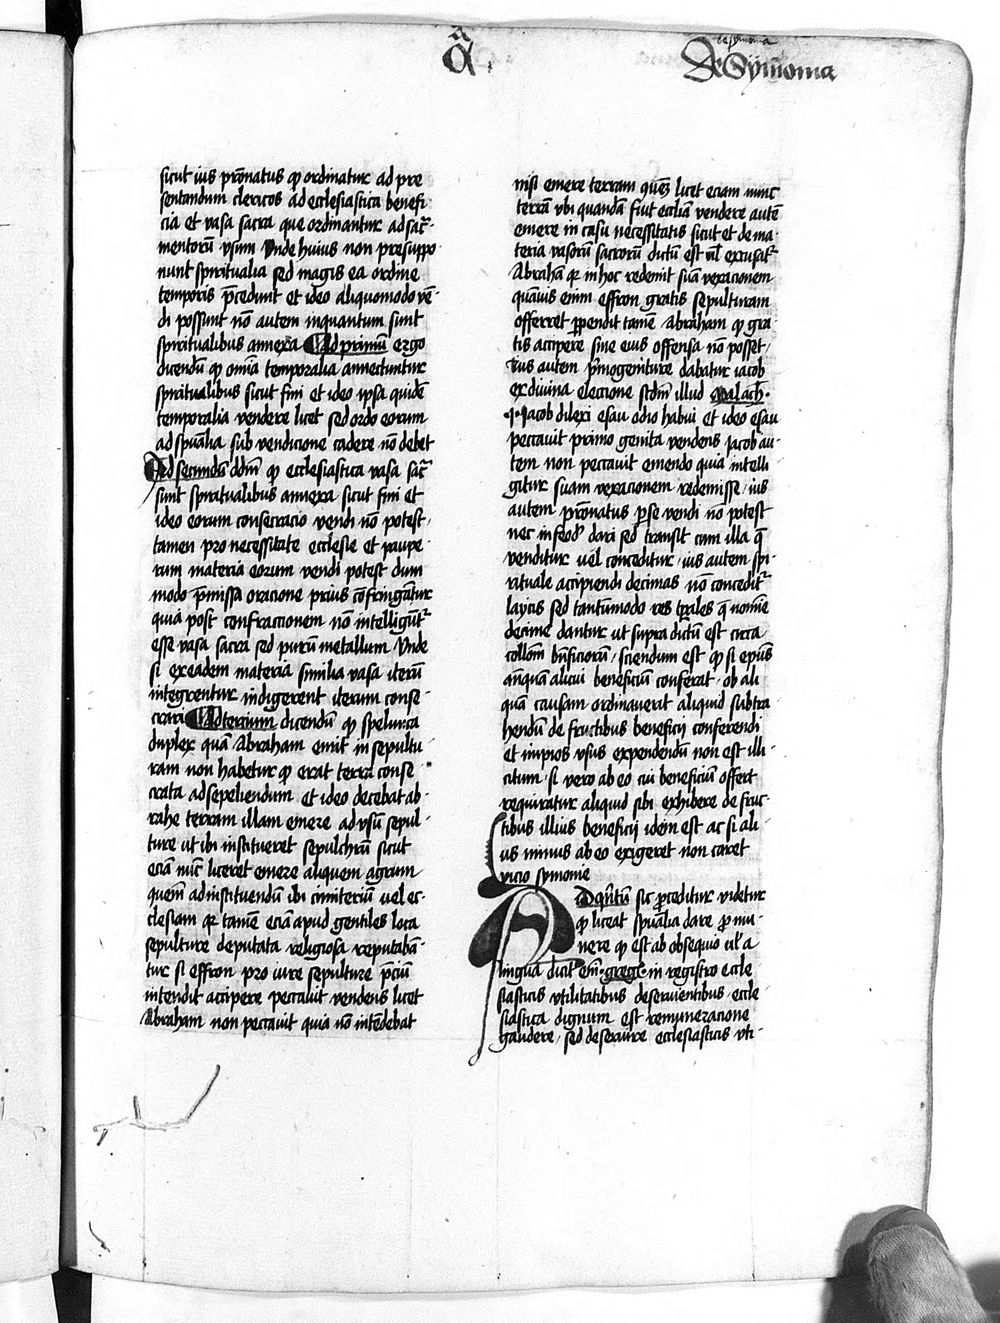 a
de symonia
De Symonia
sicut ius pro̅natus qp ordinatur ad pre
sentandum clericos ad ecclesiastica benefi-
cia et vasa sacra que ordinantur ad sac̅-
mentoru̅ vsum Vnde huius non presuppo-
nunt spiritualia sed magis ea ordine
temporis p̅cedunt et ideo aliquomodo ve̅-
di possunt no̅ autem inquantum sunt
spiritualibus annexa Ad primu̅ ergo
dicendu̅ qp om̅ia temporalia annectuntur
spiritualibus sicut fini et ideo ipsa quide̅
temporalia vendere licet sed ordo eorum
ad spu̅alia sub vendicione cadere no̅ debet
Ad secundu̅ dd̅m qp ecclesiastica vasa sac̅
sunt spiritualibus annexa sicut fini et
ideo eorum consecracio vendi no̅ potest
tamen pro necessitate ecclesie et paupe-
rum materia eorum vendi potest dum
modo p̅missa oracione prius co̅fringa̅tur
quia post confractionem no̅ intelligu̅t̅
esse vasa sacra sed puru̅ metallum Vnde
si ex eadem materia similia vasa iteru̅
integrentur indigerent iterum conse-
crari Ad tercium dicendu̅ qp spelunca
duplex qua̅ Abraham emit in sepultu-
ram non habetur qp erat terra conse-
crata ad sepeliendum et ideo decebat ab-
rahe terram illam emere ad vsu̅ sepul-
ture ut ibi institueret sepulchru̅ sicut
ecia̅ nu̅c liceret emere aliquem agrum
quem̅ ad instituendu̅ ibi cimiterium uel ec-
clesiam qr tame̅ ecia̅ apud gentiles loca
sepulture deputata religiosa reputaba̅-
tur si effron pro iure sepulture p̅ciu̅
intendit accipere peccauit vendens licet
Abraham non peccauit quia no̅ inte̅debat
nisi emere terram que̅ licet eciam nunc
terra̅ vbi quanda̅ fuit ecclia̅ vendere aut
emere in casu necessitatis sicut et de ma-
teria vasoru̅ sacroru̅ dictu̅ est vl̅ excusat̅
Abraha̅ qr in hoc redemit sua̅ vexacionem
qua̅uis enim effron gratis sepulturam
offerret perpendit tame̅ Abraham qp gra-
tis accipere sine eius offensa no̅ posset
Ius autem p̅mogeniture dabatur iacob
ex diuina eleccione scd̅m illud Malach.
.1. Jacob dilexi esau odio habui et ideo esau
peccauit primo genita vendens Jacob au-
tem non peccauit emendo quia intelli-
gitur suam vexacionem redemisse ius
autem pronatus per se vendi no̅ potest
nec in feod̅ dari sed transit cum illa q̅
venditur uel conceditur ius autem spi-
rituale accipiendi decimas no̅ concedit̅
laycis sed tantu̅modo res tp̅ales q̅ nomi̅e
decime dantur ut supra dictu̅ est circa
collom̅ bn̅ficioru̅ sciendum est qp si epus̅
anqua̅ alicui beneficiu̅ conferat ob ali-
qua̅ causam ordinauerat aliquid subtra-
hendu̅ de fructibus beneficij conferendi
et in pios vsus expendendu̅ non est illi-
citum si vero ab eo cui beneficiu̅ offert
requiratur aliquid sibi exhibere de fruc-
tibus illius beneficij idem est ac si ali-
us minus ab eo exigeret non caret
vicio symonie
Ad qi̅ntu̅ sic proceditur videtur
qp liceat spu̅alia dare pro mu-
nere qp est ab obsequio ul̅ a
lingua dicit em̅ grego in registro eccle
siasticis vtilitatibus deseruientibus eccle
siastica dignum est remuneracione
gaudere sed deseruire ecclesiasticis vti-